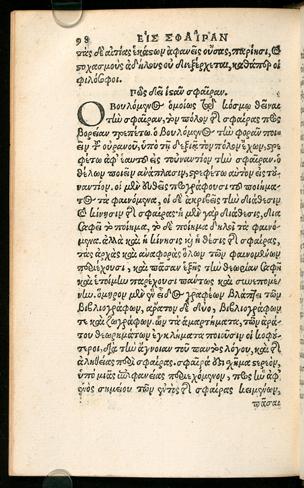 98 ΕΙΣ ΣΦΑΙΡΑΝ
τὰς δὲ αἰτίας ἑκάστων ἀφανεῖς οὔσας, παρίησι,
στοχασμοὺς ἀδήλους οὐ διεξέρχεται, καθάπερ οἱ
φιλόσοφοι.
Πῶς δεῖ ἱστᾶν σφαῖραν.
Ο Βουλόμενος ὁμοίως τῷ κόσμῳ θεῖναι
τὴν σφαῖραν, τὸν πόλον τῆς σφαίρας πρὸς
βορείαν τρεπέτω. ὁ βουλόμενος τὴν φορὰν ποιεῖν
τοῦ οὐρανοῦ, ὑπὸ τῇ δεξιᾷ τὸν πόλον ἔχων, στρεφέτω
ἀφ' ἑαυτοῦ εἰς τοὐναντίον τὴν σφαῖραν. ὁ
θέλων ποιεῖν ἀνάπλασιν, στρεφέτω αὐτὸν εἰς τοὐναντίον.
οἱ μὲν εὐθέως περιγράφουσι τοῦ ποιήματος
τὰ φαινόμενα, οἱ δὲ ἀκριβεῖς τὴν διάθεσιν
κίνησιν τῆς σφαίρας. ἡ μὲν γὰρ διάθεσις, διασαφεῖ
τὸ ποίημα, τὸ δὲ ποίημα δηλοῖ τὰ φαινόμενα.
ἀλλὰ καὶ ἡ κίνησις καὶ ἡ θέσις τῆς σφαίρας,
τὰς ἀρχὰς καὶ ἀναφορὰς ὅλων τῶν φαινομένων
περιέχουσι, καὶ πᾶσαν ἑξῆς τὴν θεωρίαν σαφῆ
καὶ ἑτοίμην παρέχουσι παντὸς καὶ συνεπομένην.
ὅμηρον μὲν ἓν εἶδος γραφέων βλάπτει τῶν
βιβλιογράφων, ἄρατον δὲ δύο, βιβλιογράφων
τε καὶ ζωγράφων. ὧν τὰ ἁμαρτήματα, τῶν ἀράτου
θεωρημάτων ἐγκλήματα ποιοῦσιν οἱ κουφότεροι,
διὰ τὴν ἄγνοιαν τοῦ παντὸς λόγου, καὶ τῆς
ἀληθείας περὶ σφαίρας. σφαῖρά ἐστι σχῆμα στερεόν,
ὑπὸ μιᾶς ἐπιφανείας περιεχόμενον, πρὸς ἣν ἀφ'
ἑνὸς σημείου τῶν ἐντὸς τῆς σφαίρας κειμένων,
πᾶσαι